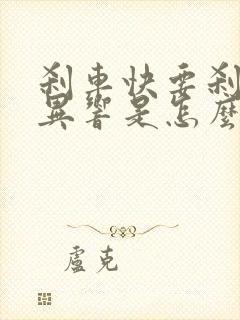 刹車快要刹
異響是怎麼
盧克